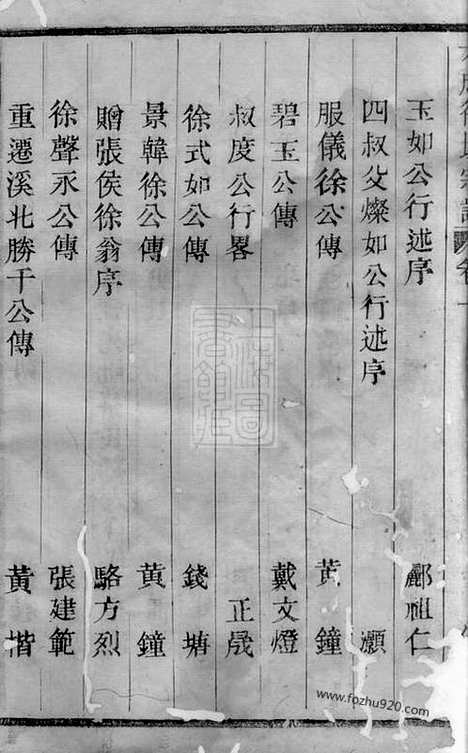 玉如公行述序 酈祖仁
四叔父燦如公行述序 灝
服儀徐公傳 黃鐘
碧玉公傳 戴文燈
叔度公行畧 正晟
徐式如公傳 錢塘
景韓徐公傳 黃鐘
贈張侯徐翁序 駱方烈
徐聲永公傳 張建範
重遷溪北勝千公傳 黃楷
www.fozhu920.com